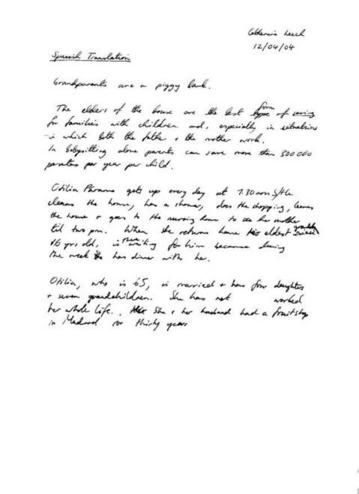 12/04/04
Spanish Translation
Grandparents are a piggy bank.
The elders of the house are the best form of saving
for families with children and, especially in situations
in which both the father & the mother work.
In babysitting alone parents can save more than 500 000
pesetas per year per child.
Otilia gets up every day at 7.30am. She
cleans the house, has a shower, does the shopping, leaves
the house & goes to the nursing home to see her mother
til two pm. When she returns home her eldest
16 yrs old, is there waiting for him because during
the week he has dinner with her.
Otilia, who is 65, is married & has four daughters
& seven grandchildren. She has not worked
her whole life. She & her husband had a fruitshop
in Madrid for thirty years